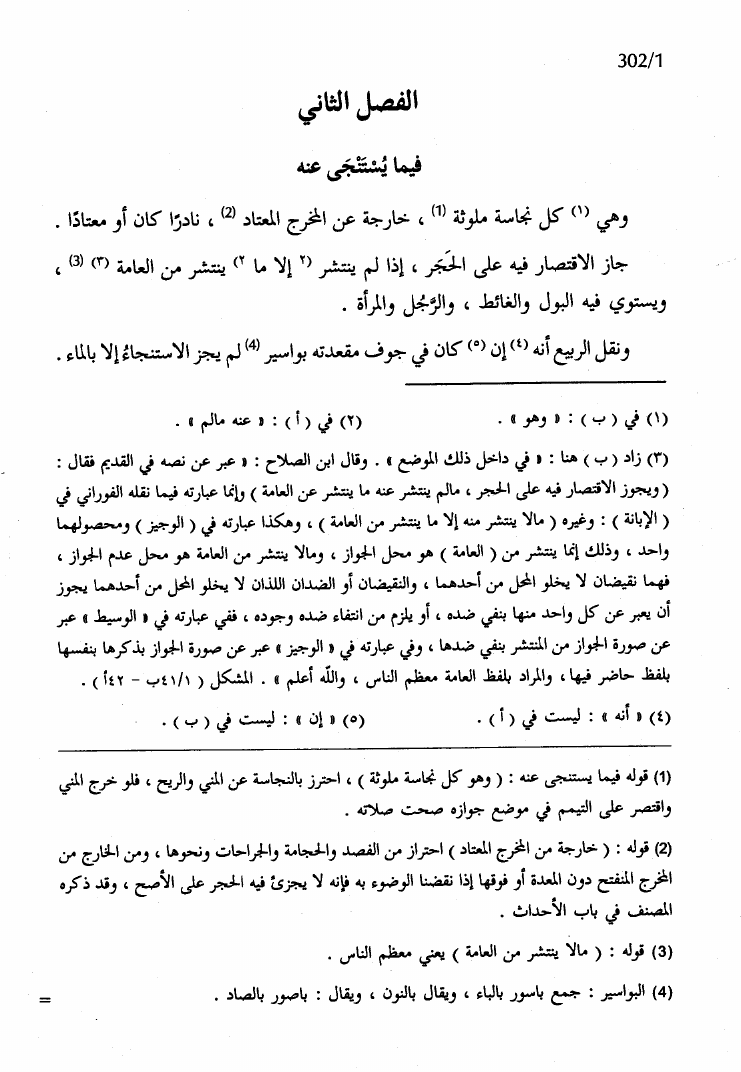 302/1
الفصل الثاني
فيما يُسْتَنْجَى عنه
وهي (١) كل نجاسة ملوثة (1) ، خارجة عن المخرج المعتاد (2) ، نادرًا كان أو معتادًا .
جاز الاقتصار فيه على الحَجَر ، إذا لم ينتشر (٢ إلا ما ٢) ينتشر من العامة (٣) (3) ،
ويستوي فيه البول والغائط ، والرَّجُل والمرأة .
ونقل الربيع أنه (٤) إن (٥) كان في جوف مقعدته بواسير (4) لم يجز الاستنجاءُ إلا بالماء .
(١) في ( ب ) : « وهو » . (٢) في ( أ ) : « عنه مالم » .
(٣) زاد ( ب ) هنا : « في داخل ذلك الموضع » . وقال ابن الصلاح : « عبر عن نصه في القديم فقال :
( ويجوز الاقتصار فيه على الحجر ، مالم ينتشر عنه ما ينتشر عن العامة ) وإنما عبارته فيما نقله الفوراني في
( الإبانة ) : وغيره ( مالا ينتشر منه إلا ما ينتشر من العامة ) ، وهكذا عبارته في ( الوجيز ) ومحصولهما
واحد ، وذلك إنما ينتشر من ( العامة ) هو محل الجواز ، ومالا ينتشر من العامة هو محل عدم الجواز ،
فهما نقيضان لا يخلو المحل من أحدهما ، والنقيضان أو الضدان اللذان لا يخلو المحل من أحدهما يجوز
أن يعبر عن كل واحد منها بنفي ضده ، أو يلزم من انتفاء ضده وجوده ، ففي عبارته في « الوسيط » عبر
عن صورة الجواز من المنتشر بنفي ضدها ، وفي عبارته في « الوجيز » عبر عن صورة الجواز بذكرها بنفسها
بلفظ حاضر فيها ، والمراد بلفظ العامة معظم الناس ، والله أعلم » . المشكل ( ٤١/١ب – ٤٢أ ) .
(٤) « أنه » : ليست في ( أ ) . (٥) « إن » : ليست في ( ب ) .
(1) قوله فيما يستنجى عنه : ( وهو كل نجاسة ملوثة ) ، احترز بالنجاسة عن المني والريح ، فلو خرج المني
واقتصر على التيمم في موضع جوازه صحت صلاته .
(2) قوله : ( خارجة من المخرج المعتاد ) احتراز من الفصد والحجامة والجراحات ونحوها ، ومن الخارج من
المخرج المنفتح دون المعدة أو فوقها إذا نقضنا الوضوء به فإنه لا يجزئ فيه الحجر على الأصح ، وقد ذكره
المصنف في باب الأحداث .
(3) قوله : ( مالا ينتشر من العامة ) يعني معظم الناس .
(4) البواسير : جمع باسور بالباء ، ويقال بالنون ، ويقال : باصور بالصاد .
=